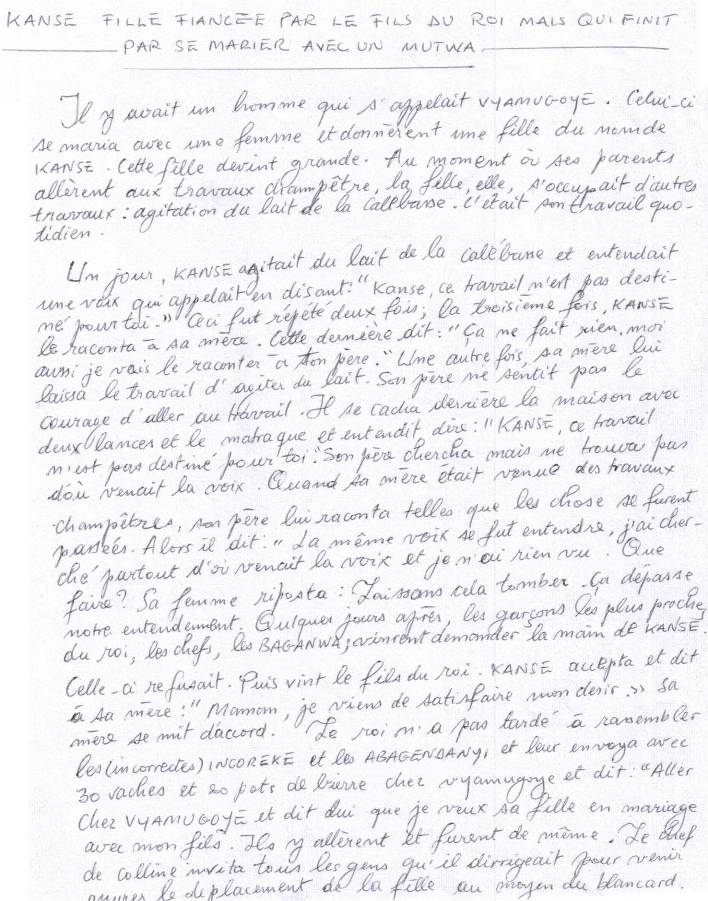 KANSE FILLE FIANCEE PAR LE FILS DU ROI MAIS QUI FINIT
PAR SE MARIER AVEC UN MUTWA
Il y avait un homme qui s'appelait VYAMUGOYE. Celui-ci
se maria avec une femme et donnèrent une fille du nom de
KANSE. Cette fille devint grande. Au moment où ses parents
allèrent aux travaux champêtre, la fille, elle, s'occupait d'autres
travaux : agitation du lait de la callebasse. C'était son travail quo-
tidien.
Un jour, KANSE agitait du lait de la calebasse et entendait
une voix qui appelait en disant: "Kanse, ce travail n'est pas desti-
né pour toi." Ceci fut répété deux fois; la troisième fois, KANSE
le raconta à sa mère. Cette dernière dit: "Ça ne fait rien, moi
aussi je vais le raconter à ton père." Une autre fois, sa mère lui
laissa le travail d'agiter du lait. Son père ne sentit pas le
courage d'aller au travail. Il se cacha derrière la maison avec
deux lances et le matraque et entendit dire: "KANSE, ce travail
n'est pas destiné pour toi". Son père chercha mais ne trouva pas
d'où venait la voix. Quand sa mère était venue des travaux
champêtres, son père lui raconta telles que les chose se furent
passées. Alors il dit: "La même voix se fut entendre, j'ai cher-
ché partout d'où venait la voix et je n'ai rien vu. Que
faire? Sa femme riposta: Laissons cela tomber. Ça dépasse
notre entendement. Quelques jours après, les garçons les plus proches
du roi, les chefs, les BAGANWA; vinrent demander la main de KANSE.
Celle-ci refusait. Puis vint le fils du roi. KANSE accepta et dit
à sa mère: "Maman, je viens de satisfaire mon desir." Sa
mère se mit d'accord. Le roi n'a pas tardé à rassembler
les (incorrectes) INCOREKE et les ABAGENDANYI et leur envoya avec
30 vaches et 20 pots de bierre chez vyamugoye et dit: "Aller
chez VYAMUGOYE et dit lui que je veux sa fille en mariage
avec mon fils. Ils y allèrent et furent de même. Le chef
de colline invita tous les gens qu'il dirrigeait pour venir
assurer le déplacement de la fille au moyen du blancard.